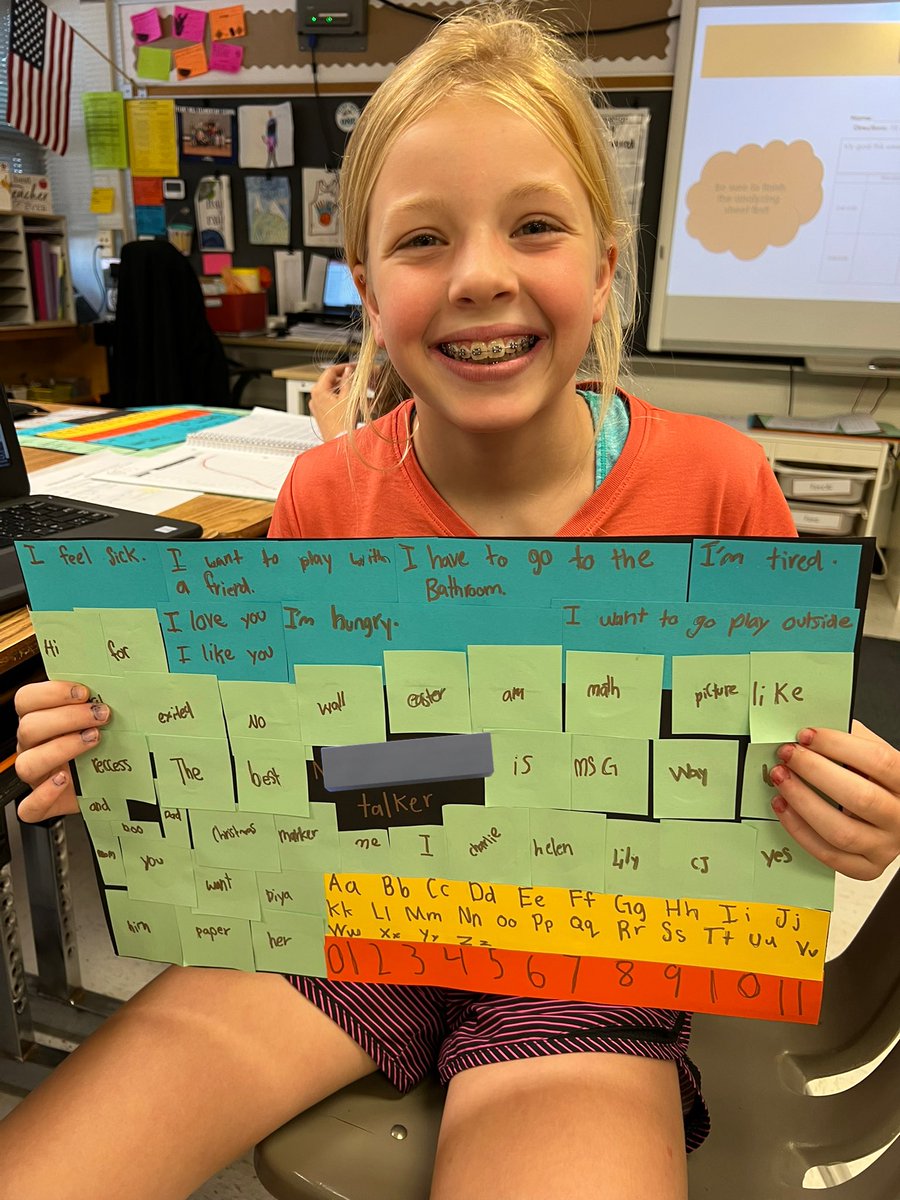 Be sure to finish
the analyzing
sheet first
I feel sick.
I want to play with
a friend.
I have to go to the
Bathroom.
I'm tired.
I love you
I like you
I'm hungry.
I want to go play outside
Hi
for
exited
no
wall
easter
am
math
picture
like
reccess
The
best
is
MSG
way
talker
and
boo
Dad
Christmas
marker
me
I
charlie
helen
Lily
CJ
yes
mom
you
want
Diya
him
paper
her
Aa Bb Cc Dd Ee Ff Gg Hh Ii Jj
Kk Ll Mm Nn Oo Pp Qq Rr Ss Tt Uu Vv
Ww Xx Yy Zz
0 1 2 3 4 5 6 7 8 9 10 11